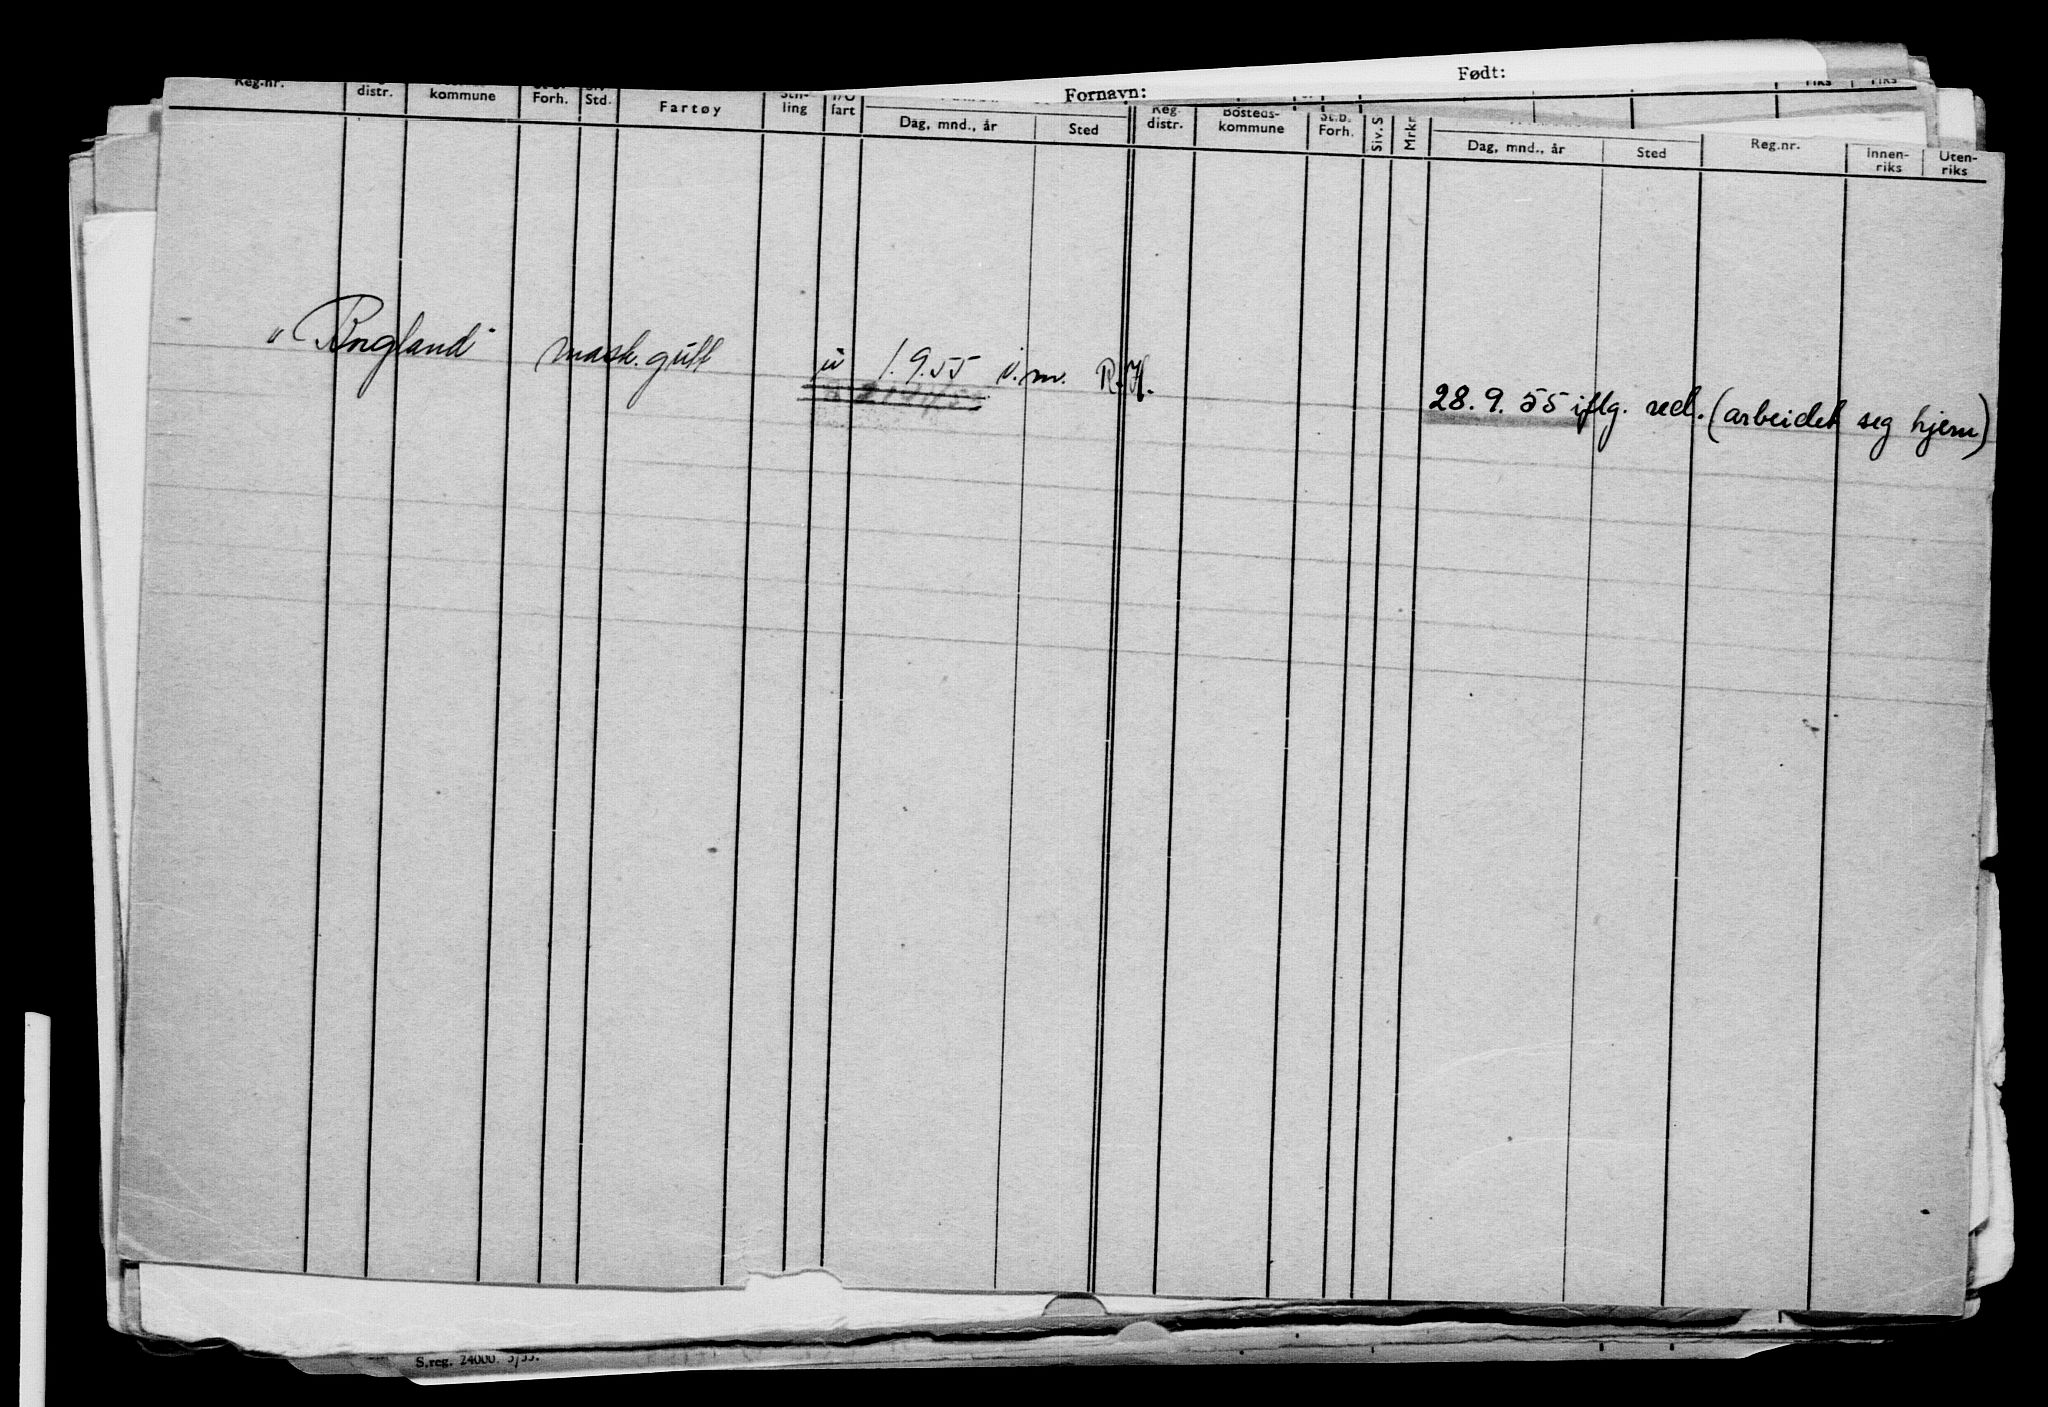 Født:
Fornavn:
riks riks
Reg.nr. distr. kommune Forh. Std. Fartøy ling fart Dag, mnd., år Sted Reg. distr. Bosteds- kommune St.b. Forh. Siv. S Mrkr Dag, mnd., år Sted Reg.nr. Innen- riks Uten- riks
mask. gutt u 1.9.55 i.m. R.H.
28.9.55 iflg. red. (arbeidet seg hjem)
S.reg. 24000. 5/55.